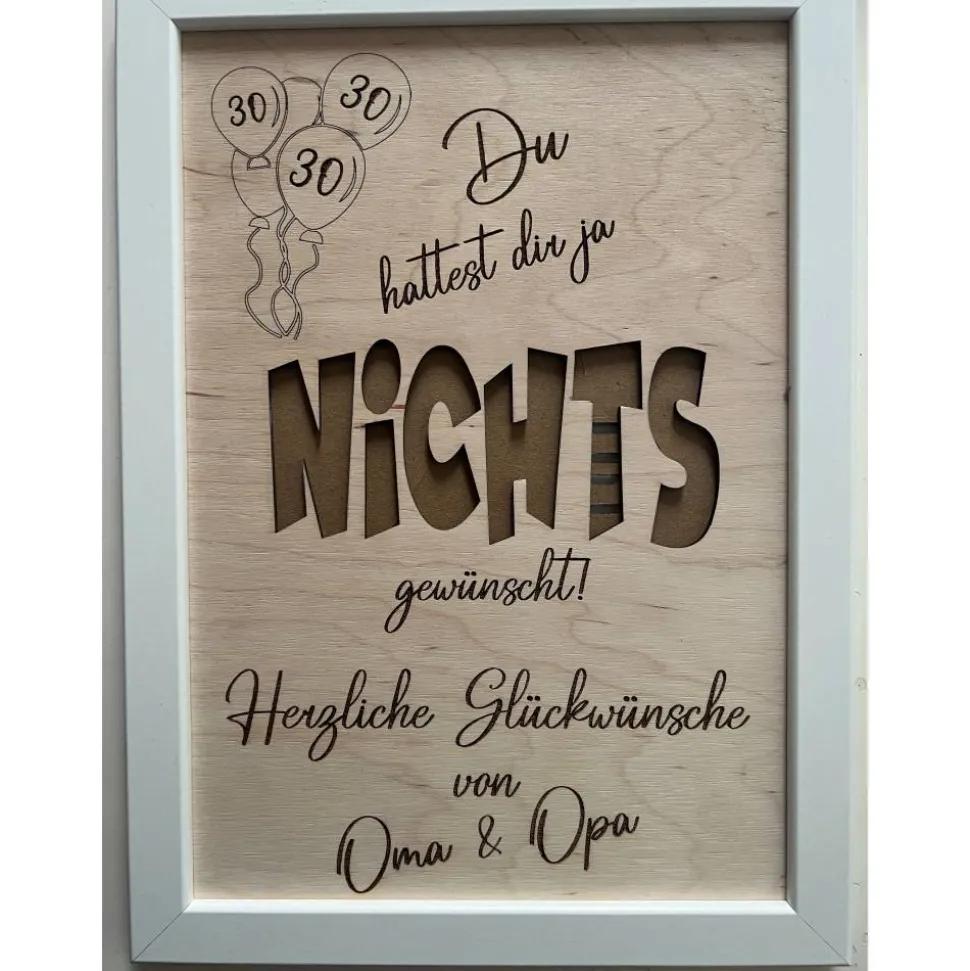 30
30
30
Du
hattest dir ja
NiCHTS
gewünscht!
Herzliche Glückwünsche
von
Oma & Opa